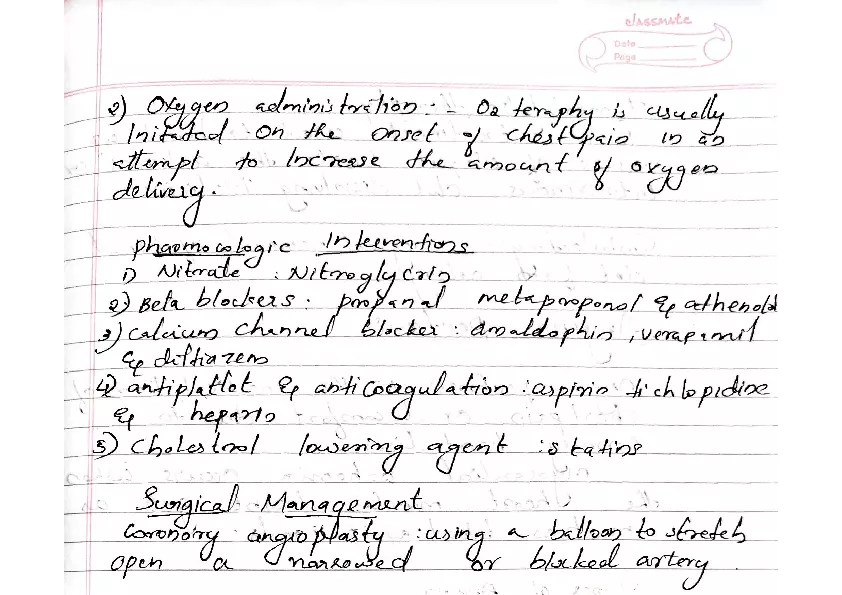 classmate
Date
Page
2) Oxygen administration :- O2 teraphy is usually
Initated on the onset of chest pain in an
attempt to Increase the amount of oxygen
delivery.
phaemocologic Inteerventions
1) Nitrate : Nitroglycrin
2) Beta blockers : propanal metaproponol & athenold
3) calcium channel blocker : amaldophin , verapamil
& diltiazem
4) antiplatlot & anticoagulation : aspirin tichlopidine
& heparin
5) Cholestrol lowering agent : statins
Surgical Management
Coronory angioplasty : using a balloon to stretch
open a narrowed or blocked artery.